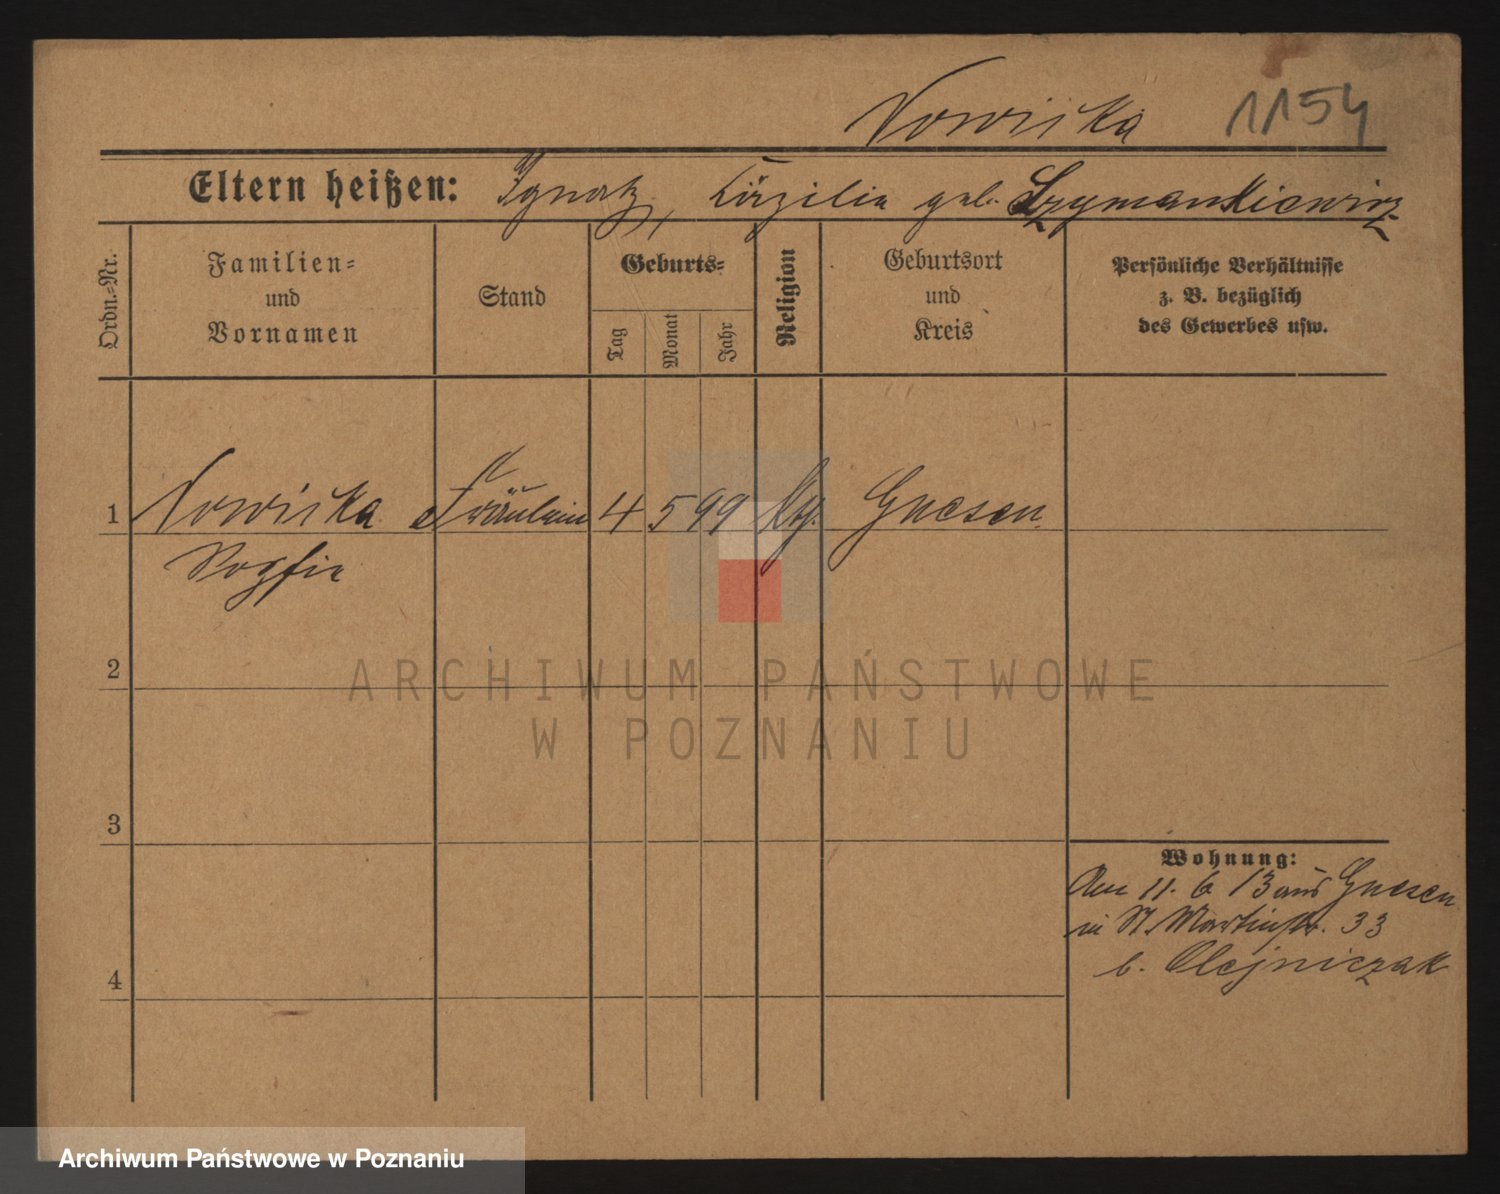 Nowicka 1154
Eltern heißen: Ignatz, Cäzilia geb. Szymankiewicz
Ordn.=Nr.
Familien=
und
Vornamen
Stand
Geburts=
Tag
Monat
Jahr
Religion
Geburtsort
und
Kreis
Persönliche Verhältnisse
z. B. bezüglich
des Gewerbes usw.
1 Nowicka Fräulein 4 5 99 Kth. Gnesen
Sophie
2
3
4
Wohnung:
Am 11. 6 13 aus Gnesen
in St Martinstr. 33
b. Olejniczak
ARCHIWUM PAŃSTWOWE
W POZNANIU
Archiwum Państwowe w Poznaniu